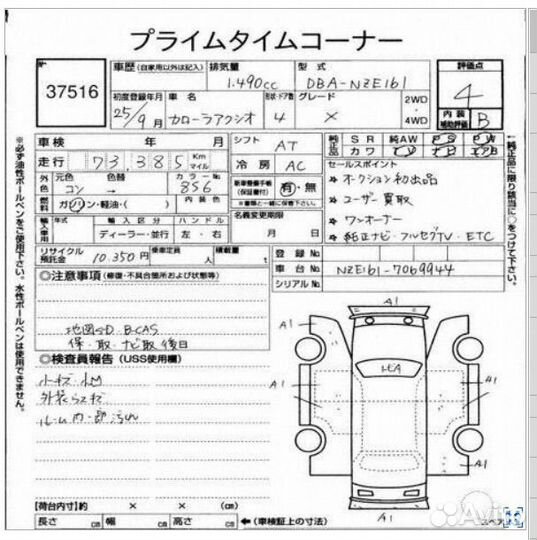 プライムタイムコーナー
37516
車歴 (自家用以外は記入) 排気量 型式 評価点
1.490cc DBA-NZE161 4
初度登録年月 車名 形状・ドア数 グレード 2WD・4WD
25/9月 カローラアクシオ 4 X
内装補助評価 B
車検 年 月 シフト AT
純正品 SR 純AW PS PW
カワ TV エアB
走行 73,385 Km マイル
冷房 AC
セールスポイント
外色 元色 色替 カラーNo.
コン → 856
新車整備手帳 (保証書付) 有・無
※書類と一緒に保管下さい。
★ オークション初出品
燃料 ガソリン・軽油・( )
★ ユーザー買取
輸入車用 年式 輸入区分 ハンドル
ディーラー・並行 左・右
名義変更期限
月 日
★ ワンオーナー
★ 純正ナビ・フルセグTV・ETC
リサイクル預託金 10,350円 乗車定員 人 積載量 t
登録No.
車台No. NZE161-7069944
シリアルNo.
◎注意事項 (修復・不具合箇所および状態等)
地図SD B-CAS
保・取・ナビ取後日
◎検査員報告 (USS使用欄)
小キズ・凹
外装ウスキズ
ルーム内一部汚れ
A1
A1
A1
A1
A1
A1
A1
【荷台内寸】約 × × (cm)
長さ cm 幅 cm 高さ cm ←(車検証上の寸法)
スペア
Avito
※必ず油性ボールペンをご使用下さい。水性ボールペンは使用できません。
純正品に限り該当に○をつけて下さい。